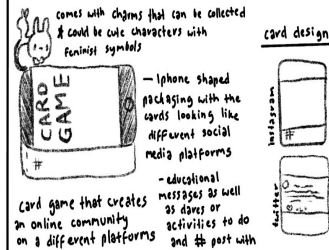 comes with charms that can be collected
& could be cute characters with
feminist symbols
card design
CARD
GAME
#
- Iphone shaped
packaging with the
cards looking like
different social
media platforms
Instagram
#
- educational
messages as well
as dares or
activities to do
and # post with
twitter
card game that creates
an online community
on a different platforms